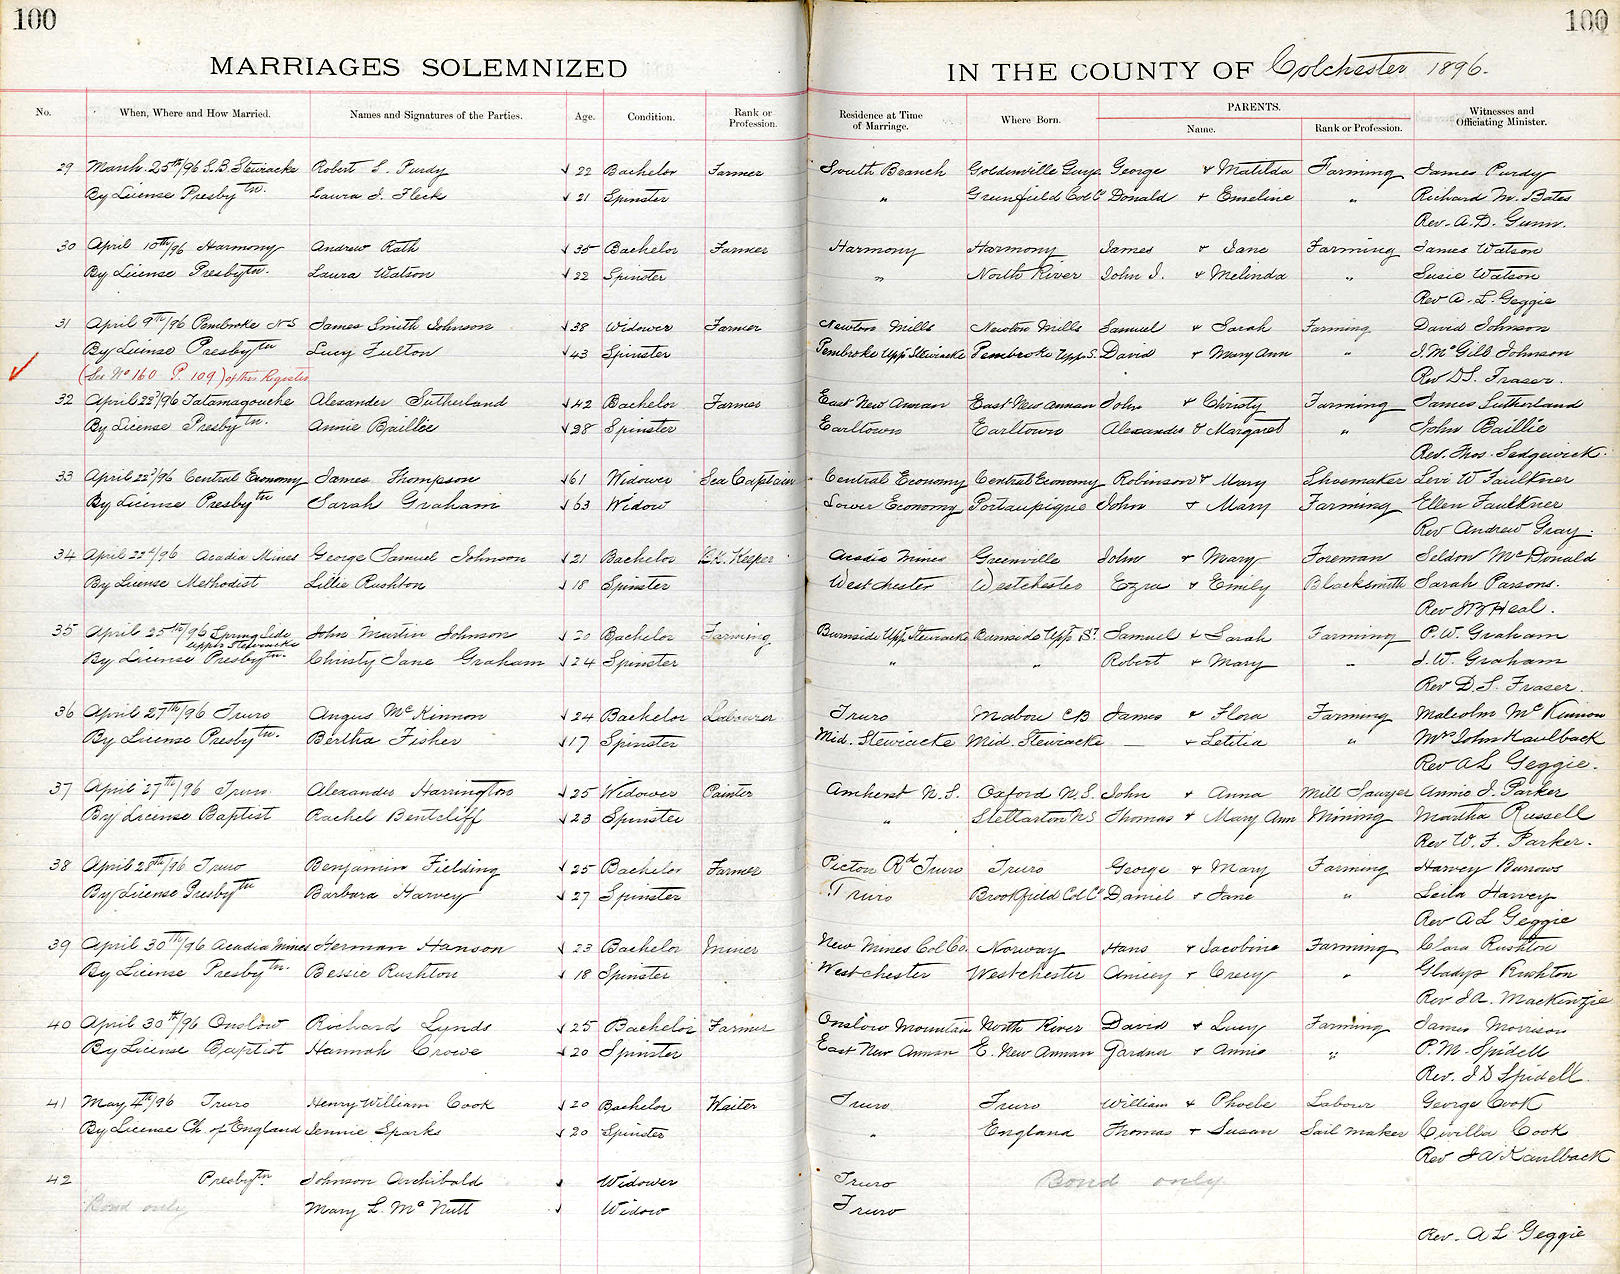 100
100
MARRIAGES SOLEMNIZED
IN THE COUNTY OF Colchester 1896.
No. When, Where and How Married. Names and Signatures of the Parties. Age. Condition. Rank or Profession. Residence at Time of Marriage. Where Born. PARENTS. Name. Rank or Profession. Witnesses and Officiating Minister.
29 March 25th/96 S.B. Stewiacke Robert L. Purdy 22 Bachelor Farmer South Branch Goldenville Guys. George & Matilda Farming James Purdy
By License Presbytn. Laura J. Fleck 21 Spinster " Greenfield Col Co Donald & Emeline " Richard M. Bates
Rev. A. D. Gunn.
30 April 10th/96 Harmony Andrew Rath 35 Bachelor Farmer Harmony Harmony James & Jane Farming James Watson
By License Presbytn. Laura Watson 22 Spinster " North River John J. & Melinda " Susie Watson
Rev A. L. Geggie
31 April 9th/96 Pembroke NS James Smith Johnson 38 Widower Farmer Newton Mills Newton Mills Samuel & Sarah Farming David Johnson
By License Presbytn Lucy Fulton 43 Spinster Pembroke Uppr Stewiacke Pembroke Upp S. David & Mary Ann " J. McGill Johnson
(See No 160 P. 109) of this Register Rev D.S. Fraser.
32 April 22d/96 Tatamagouche Alexander Sutherland 42 Bachelor Farmer East New Annan East New Annan John & Christy Farming James Sutherland
By License Presbytn. Annie Baillie 28 Spinster Earltown Earltown Alexander & Margaret " John Baillie
Rev. Thos. Sedgewick.
33 April 22d/96 Central Economy James Thompson 61 Widower Sea Captain Central Economy Central Economy Robinson & Mary Shoemaker Levi W Faulkner
By License Presbytn Sarah Graham 63 Widow Lower Economy Portaupique John & Mary Farming Ellen Faulkner
Rev Andrew Gray.
34 April 22d/96 Acadia Mines George Samuel Johnson 21 Bachelor Bk. Keeper Acadia Mines Greenville John & Mary Foreman Seldon McDonald
By License Methodist Lillie Rushton 18 Spinster Westchester Westchester Ezra & Emily Blacksmith Sarah Parsons.
Rev Heal.
35 April 25th/96 Spring Side Upper Stewiacke John Martin Johnson 20 Bachelor Farming Burnside Uppr Stewiacke Burnside Uppr St Samuel & Sarah Farming P. W. Graham
By License Presbytn. Christy Jane Graham 24 Spinster " " Robert & Mary " J. W. Graham
Rev D. S. Fraser.
36 April 27th/96 Truro Angus McKinnon 24 Bachelor Labourer Truro Mabou C.B. James & Flora Farming Malcolm McKinnon
By License Presbytn. Bertha Fisher 17 Spinster Mid. Stewiacke Mid. Stewiacke — & Letitia " Mrs John Kaulback
Rev A L Geggie.
37 April 27th/96 Truro Alexander Harrington 25 Widower Painter Amherst N.S. Oxford N.S. John & Anna Mill Sawyer Annie J. Parker
By License Baptist Rachel Bentcliff 23 Spinster " Stellarton NS Thomas & Mary Ann Mining Martha Russell
Rev W. F. Parker.
38 April 28th/96 Truro Benjamin Fielding 25 Bachelor Farmer Picton Rd Truro Truro George & Mary Farming Harvey Burows
By License Presbytn Barbara Harvey 27 Spinster Truro Brookfield Col Co Daniel & Jane " Leila Harvey
Rev A L Geggie
39 April 30th/96 Acadia Mines Herman Hanson 23 Bachelor Miner New Mines Col Co. Norway Hans & Jacobine Farming Clara Rushton
By License Presbytn. Bessie Rushton 18 Spinster Westchester Westchester & " Gladys Rushton
Rev J A. Mackenzie
40 April 30th/96 Onslow Richard Lynds 25 Bachelor Farmer Onslow Mountain North River David & Lucy Farming James Morrison
By License Baptist Hannah Crowe 20 Spinster East New Annan E. New Annan Gardner & Annie " P. M. Spidell
Rev. J D Spidell.
41 May 4th/96 Truro Henry William Cook 20 Bachelor Waiter Truro Truro William & Phoebe Labour George Cook
By License Ch. of England Jennie Sparks 20 Spinster " England Thomas & Susan Sail maker Civilla Cook
Rev J A Kaulback
42 Presbytn. Johnson Archibald Widower Truro Bond only
Bond only Mary L. McNutt Widow Truro
Rev. A L Geggie